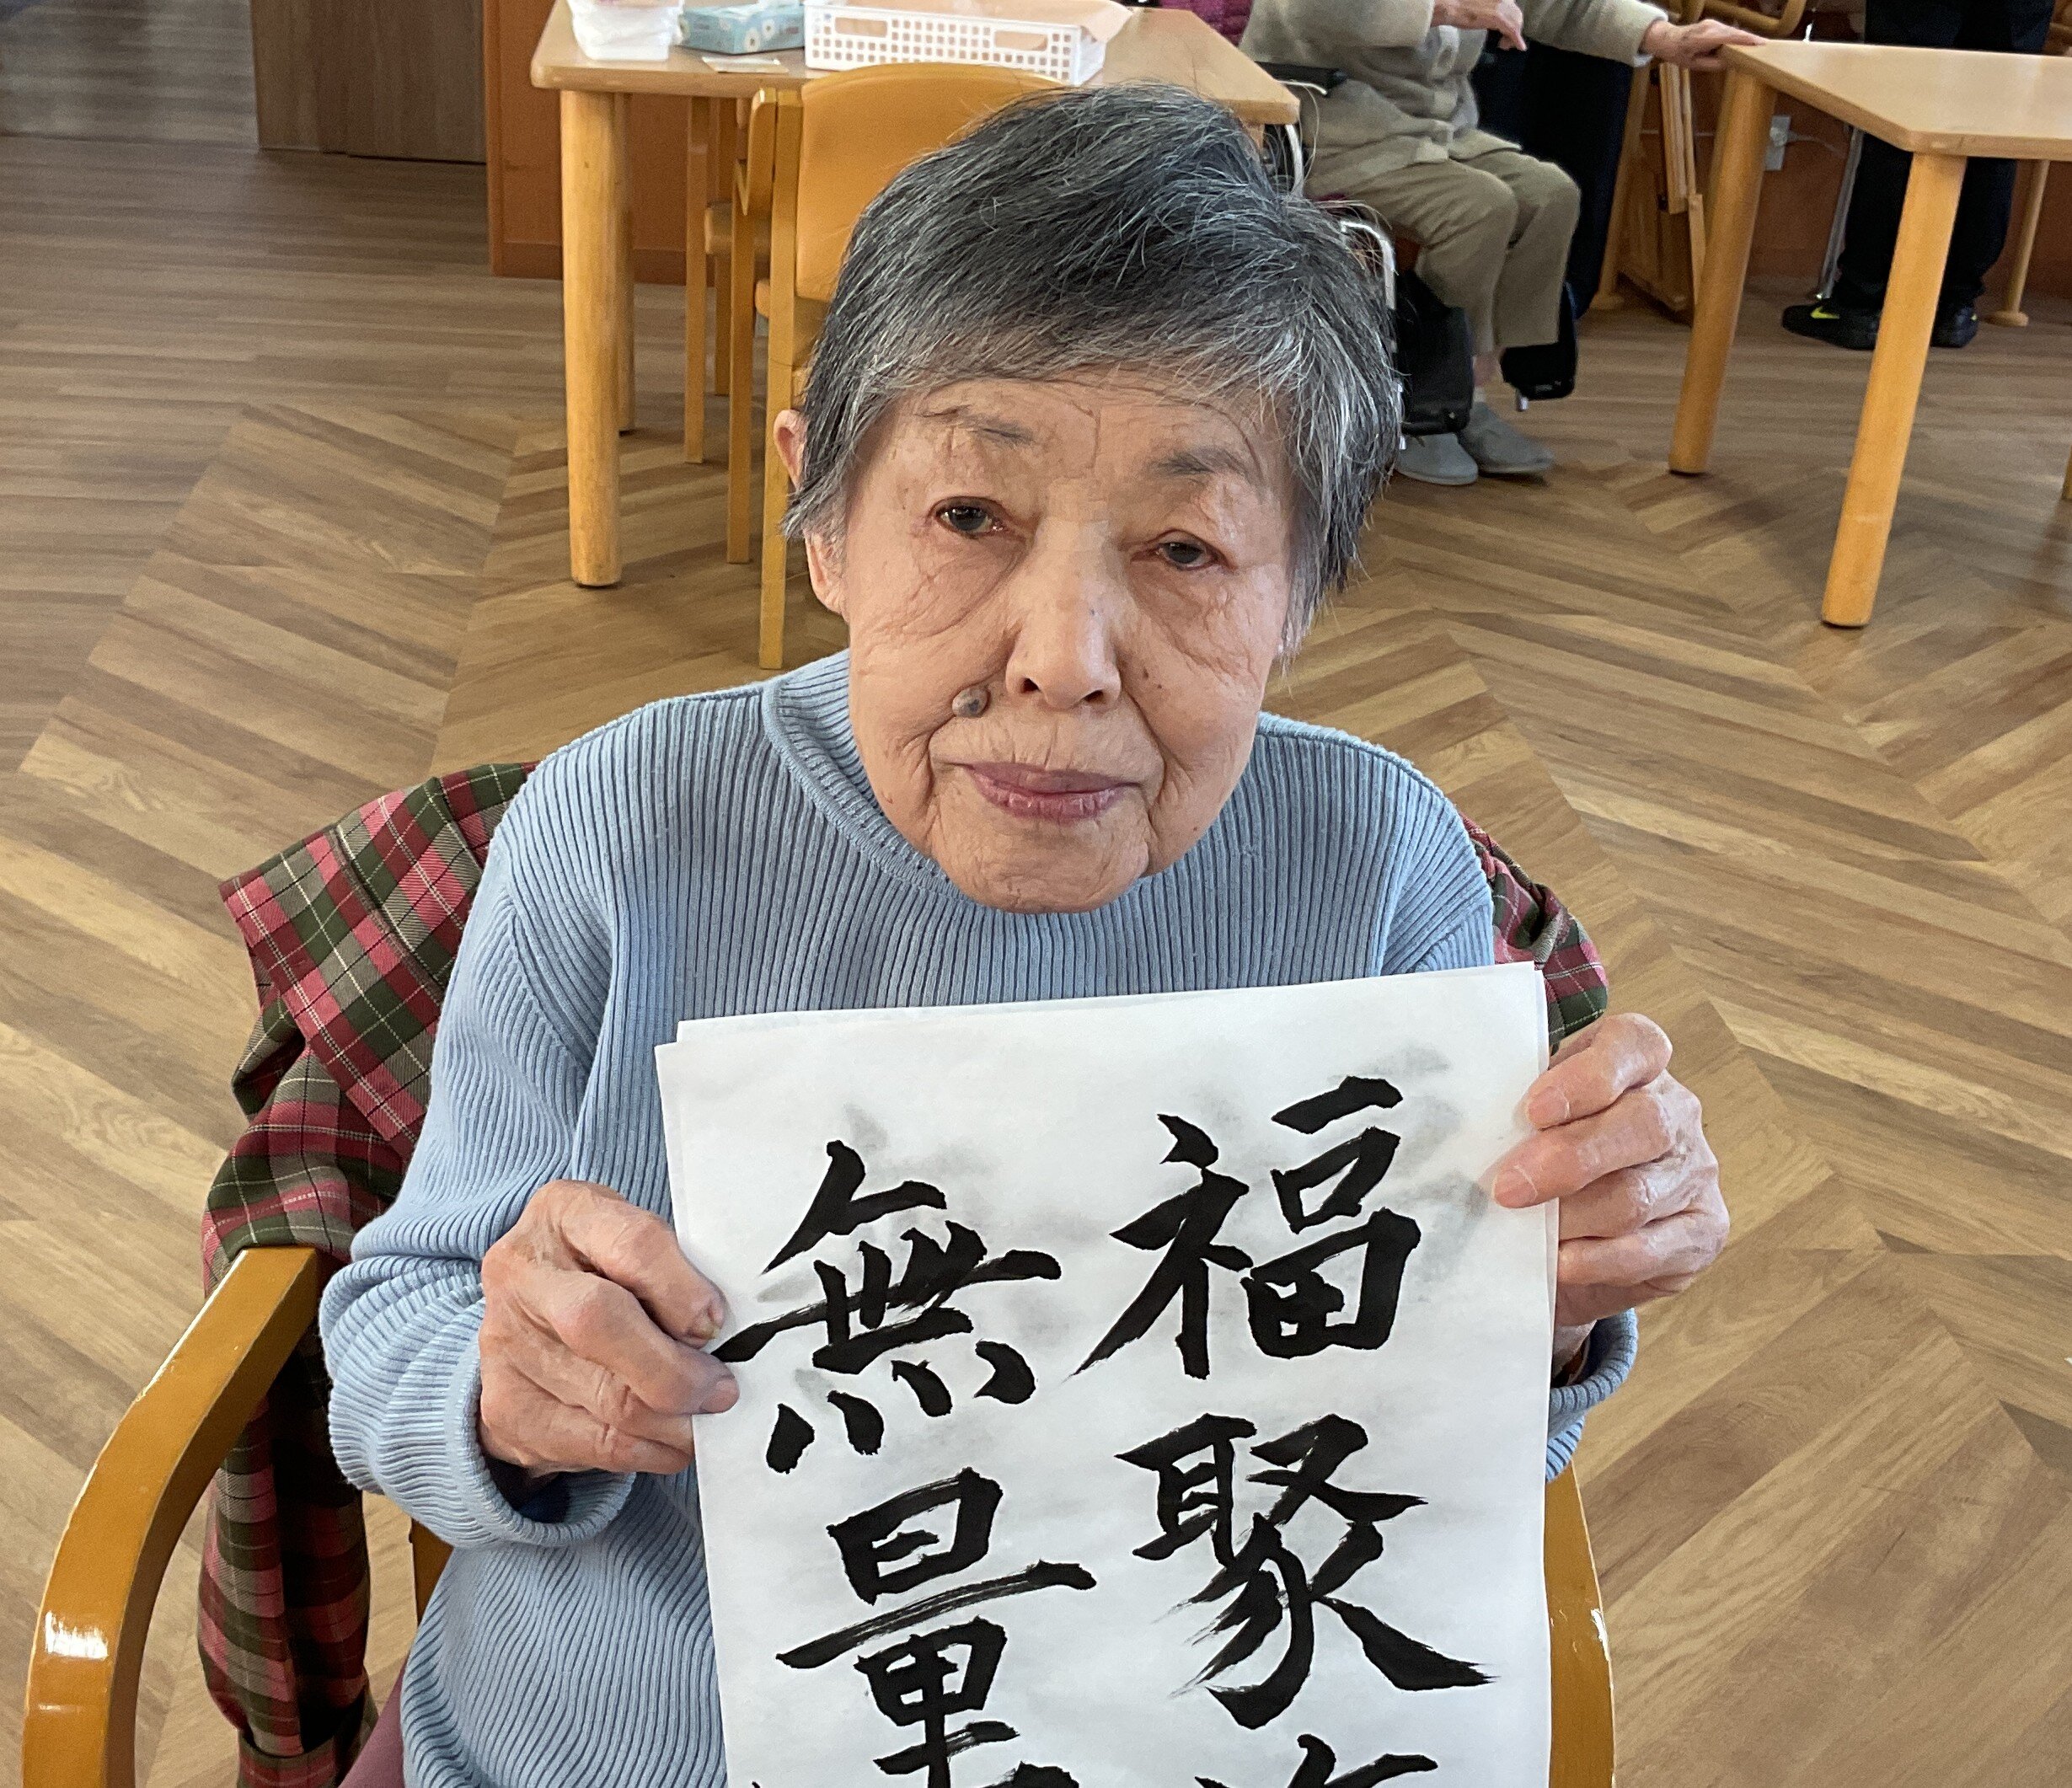 福聚
無量